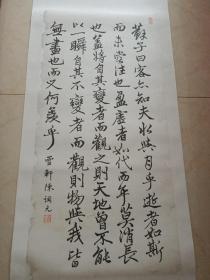 蘇子曰客亦知夫水與月乎逝者如斯
而未嘗往也盈虛者如代而卒莫消長
也蓋將自其變者而觀之則天地曾不能
以一瞬自其不變者而觀則物與我皆
無盡也而又何羨乎 雪軒陳調元